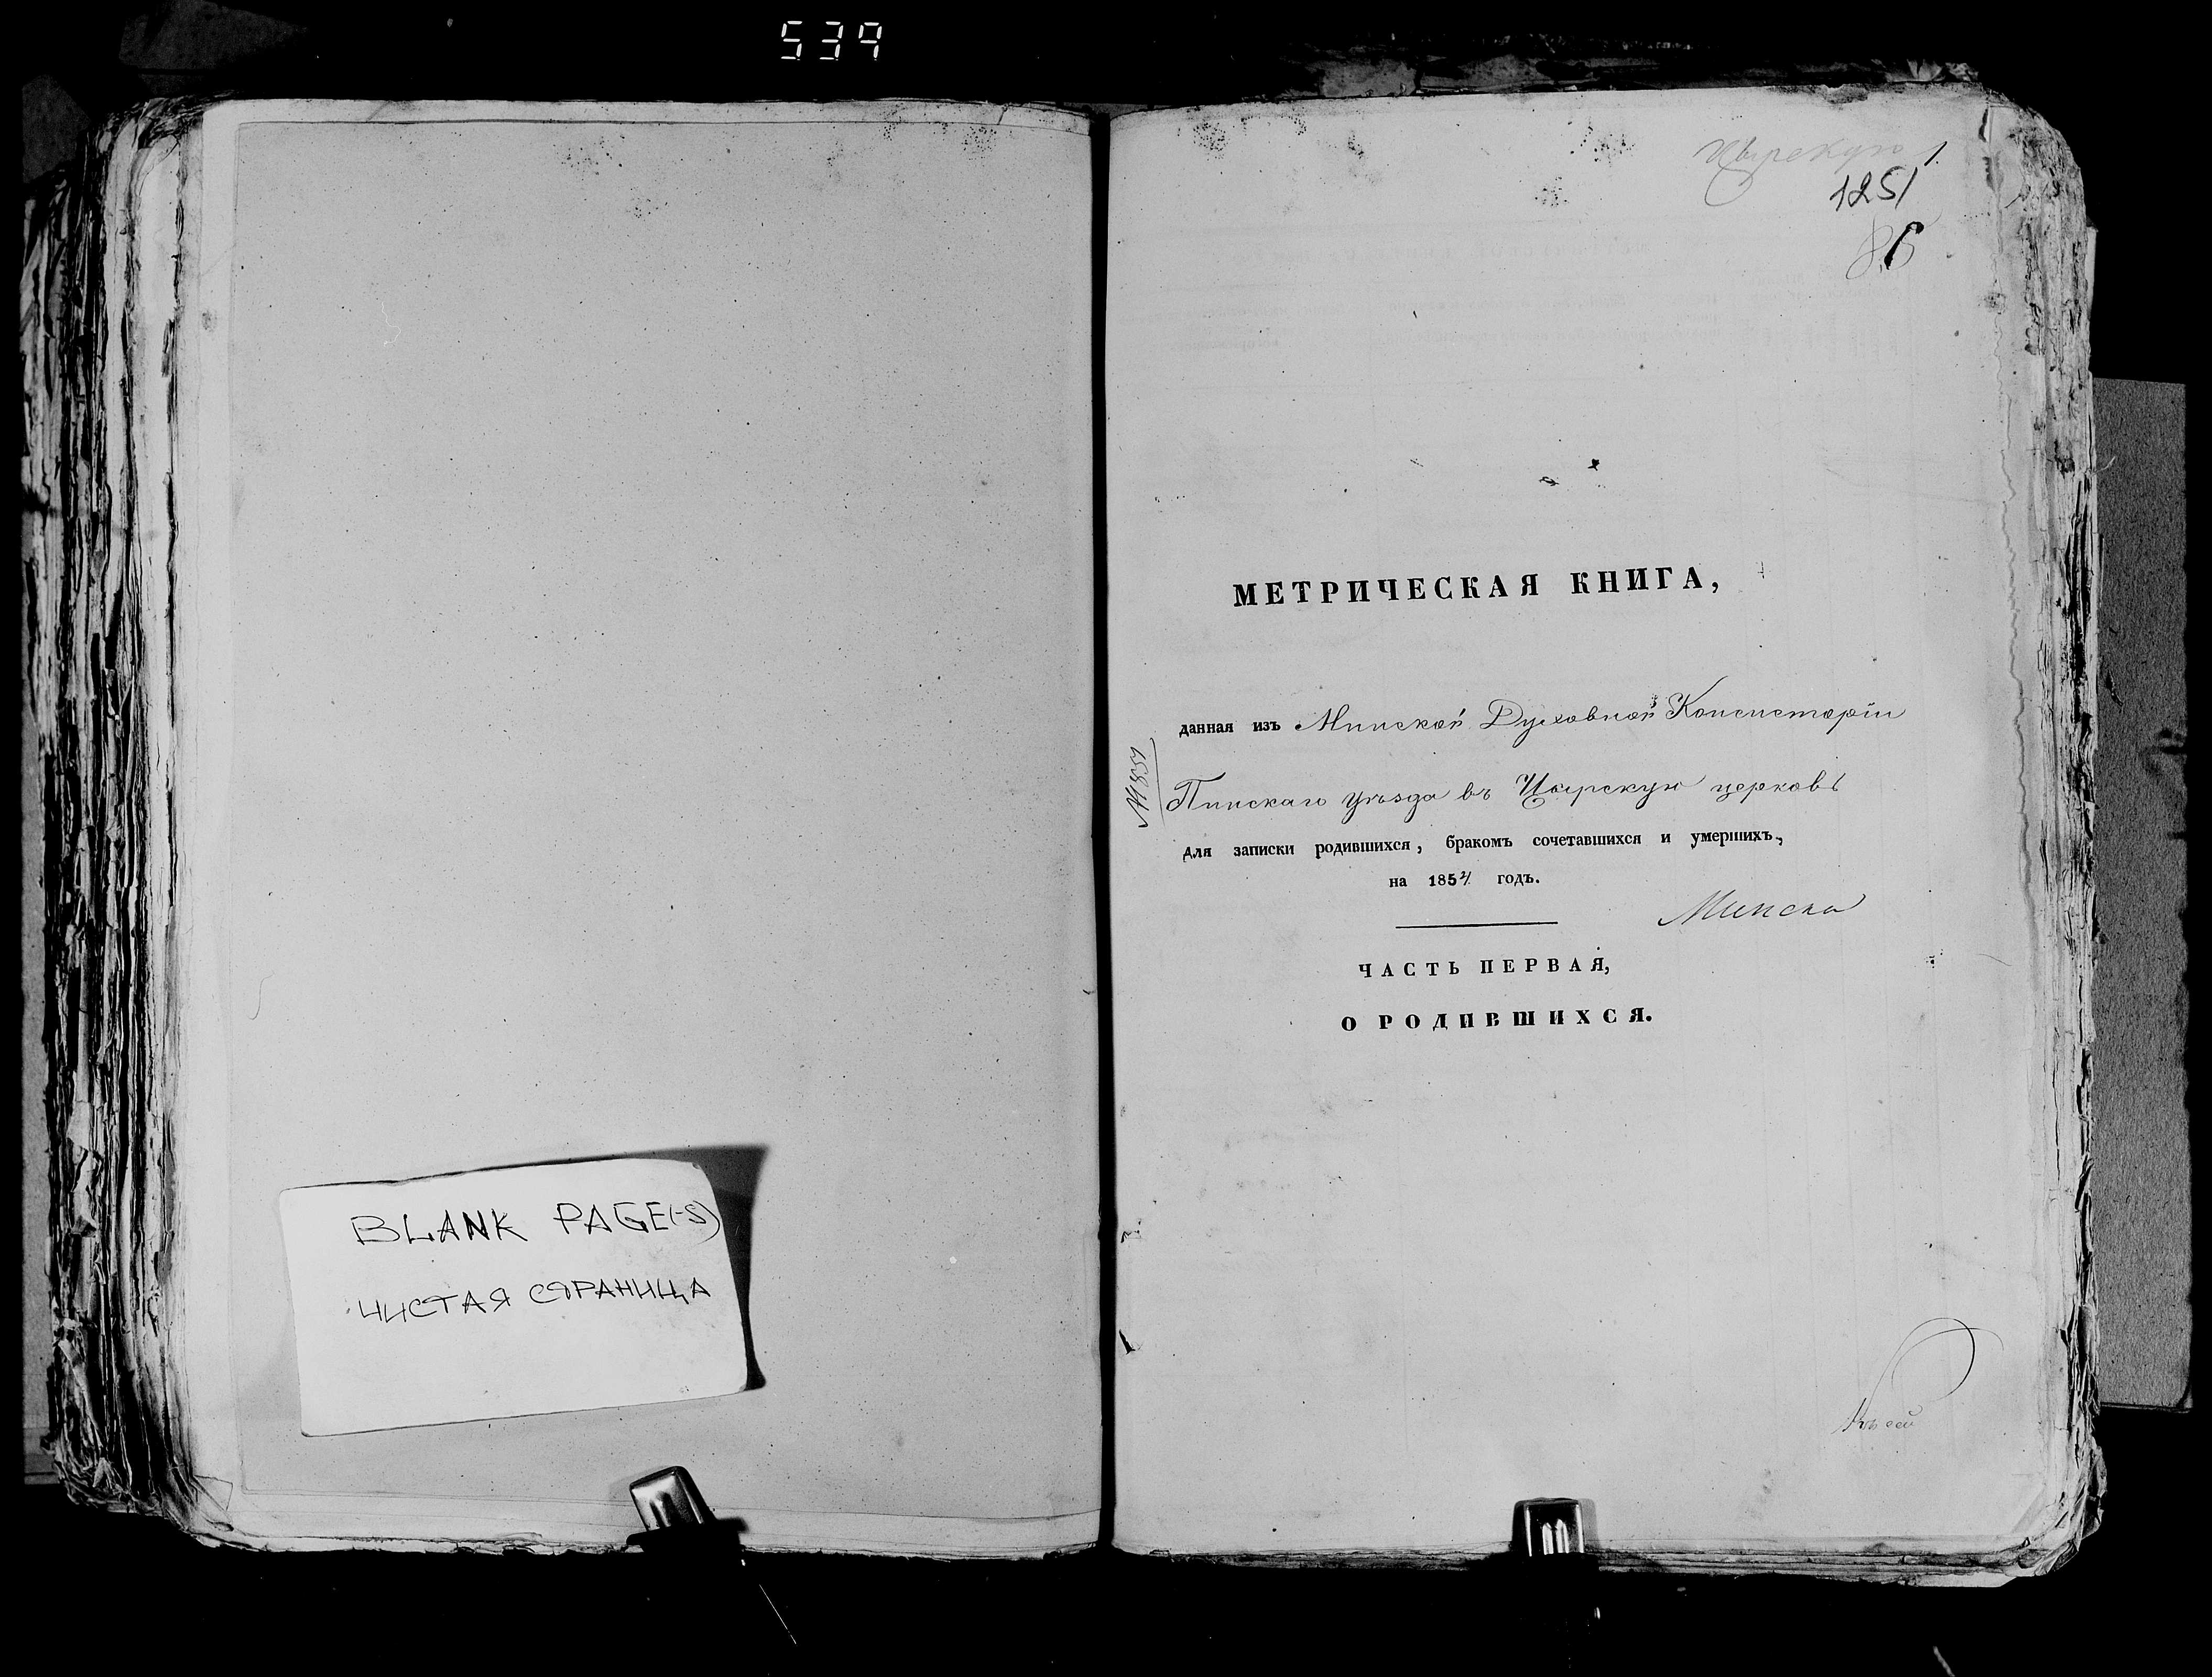 539
BLANK PAGE(-S)
ЧИСТАЯ СТРАНИЦА
Цырскую 1.
1251
МЕТРИЧЕСКАЯ КНИГА,
данная изъ Минской Духовной Консисторіи
Пинскаго уѣзда въ Цырскую церковь
для записки родившихся, бракомъ сочетавшихся и умершихъ,
на 1854 годъ.
ЧАСТЬ ПЕРВАЯ,
О РОДИВШИХСЯ.